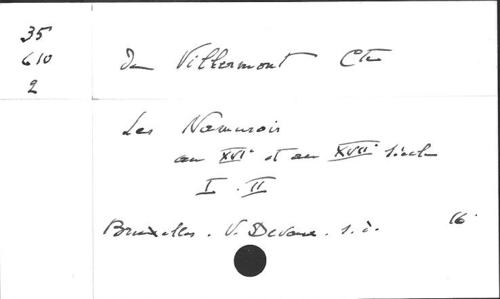 35
610
2
de Villermont Cte
Les Namurois
au XVIe et au XVIIe siècle
I. II
Bruxelles. V. Devaux. s. d. 16°